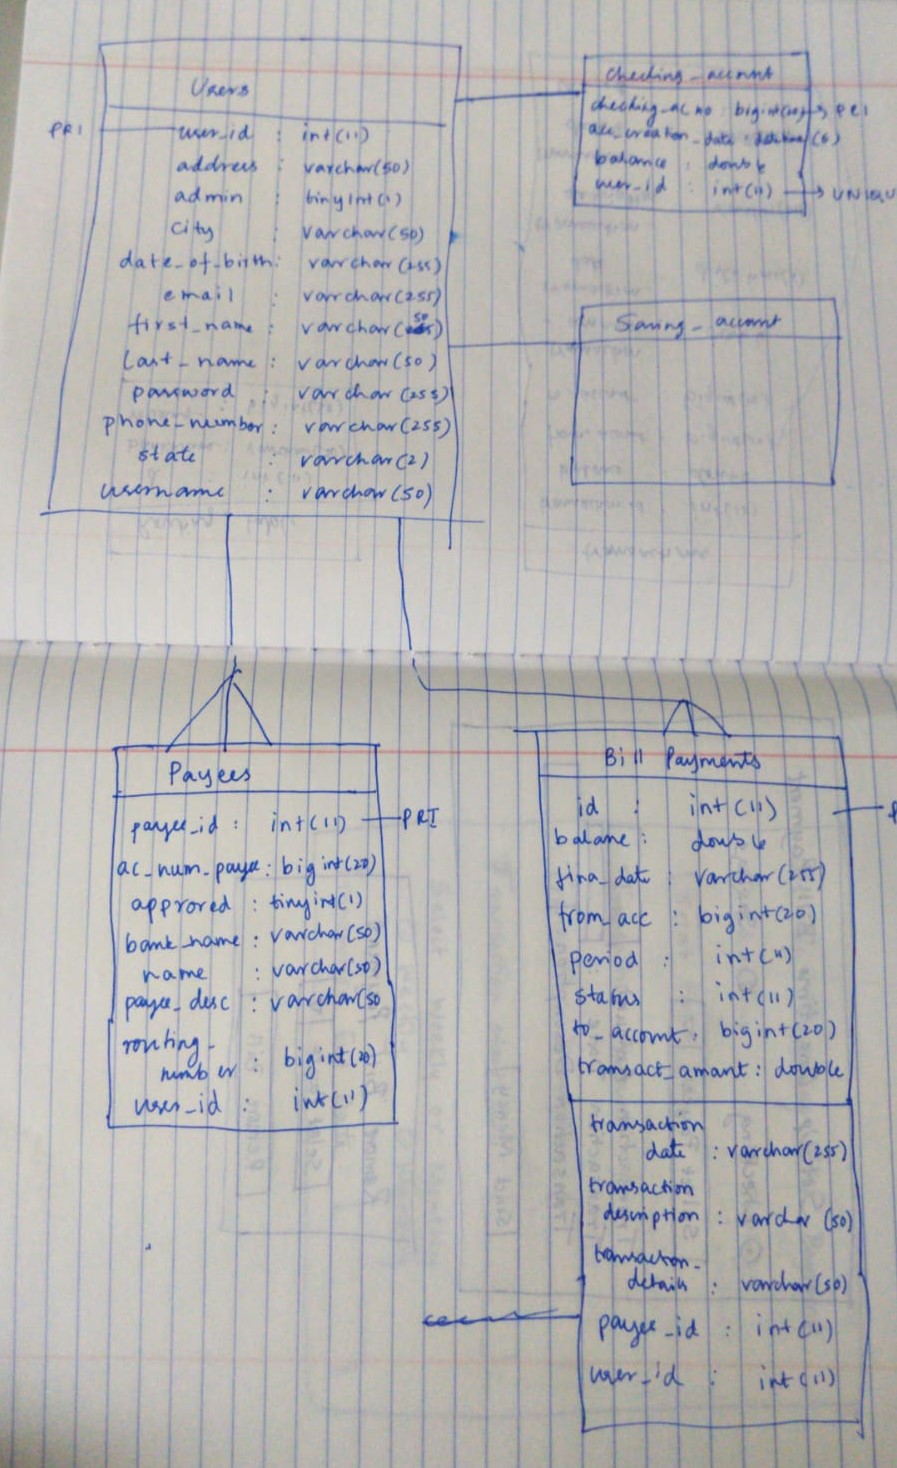 Users
PRI
user_id : int(11)
address : varchar(50)
admin : tinyint(1)
city : varchar(50)
date_of_birth: varchar(255)
email : varchar(255)
first_name : varchar(50)
last_name : varchar(50)
password : varchar(255)
phone_number: varchar(255)
state : varchar(2)
username : varchar(50)
checking_account
checking_ac no : bigint(20) → PRI
acc_creation_date : datetime(6)
balance : double
user_id : int(11) → UNIQU
Saving_account
Payees
payee_id : int(11) PRI
ac_num_payee: bigint(20)
approved : tinyint(1)
bank_name : varchar(50)
name : varchar(50)
payee_desc : varchar(50
routing_
number : bigint(20)
user_id : int(11)
Bill Payments
id : int(11) P
balane : double
fina_date : varchar(255)
from_acc : bigint(20)
period : int(11)
status : int(11)
to_account : bigint(20)
transact_amant : double
transaction
date : varchar(255)
transaction
description : varchar (50)
transaction_
details : varchar(50)
payee_id : int(11)
user_id : int(11)